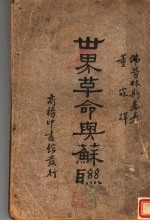 佛普林斯基著
董家譯
世界革命與蘇聯
商務印書館發行